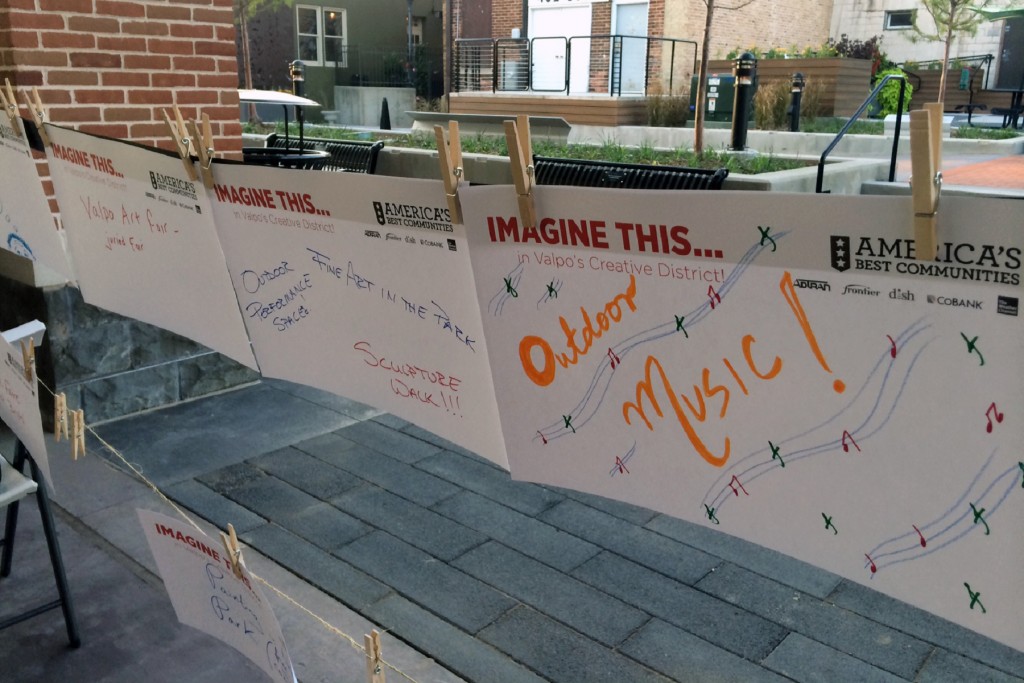 IMAGINE THIS...
in Valpo's Creative District!
AMERICA'S
BEST COMMUNITIES
Valpo Art Fair -
juried Fair
IMAGINE THIS...
in Valpo's Creative District!
AMERICA'S
BEST COMMUNITIES
ADTRAN frontier dish COBANK
OUTDOOR
PERFORMANCE
SPACE!
FINE ART IN THE PARK
SCULPTURE
WALK!!!
IMAGINE THIS...
in Valpo's Creative District!
AMERICA'S
BEST COMMUNITIES
ADTRAN frontier dish COBANK
Outdoor
MUSIC!
IMAGINE THIS...
Park